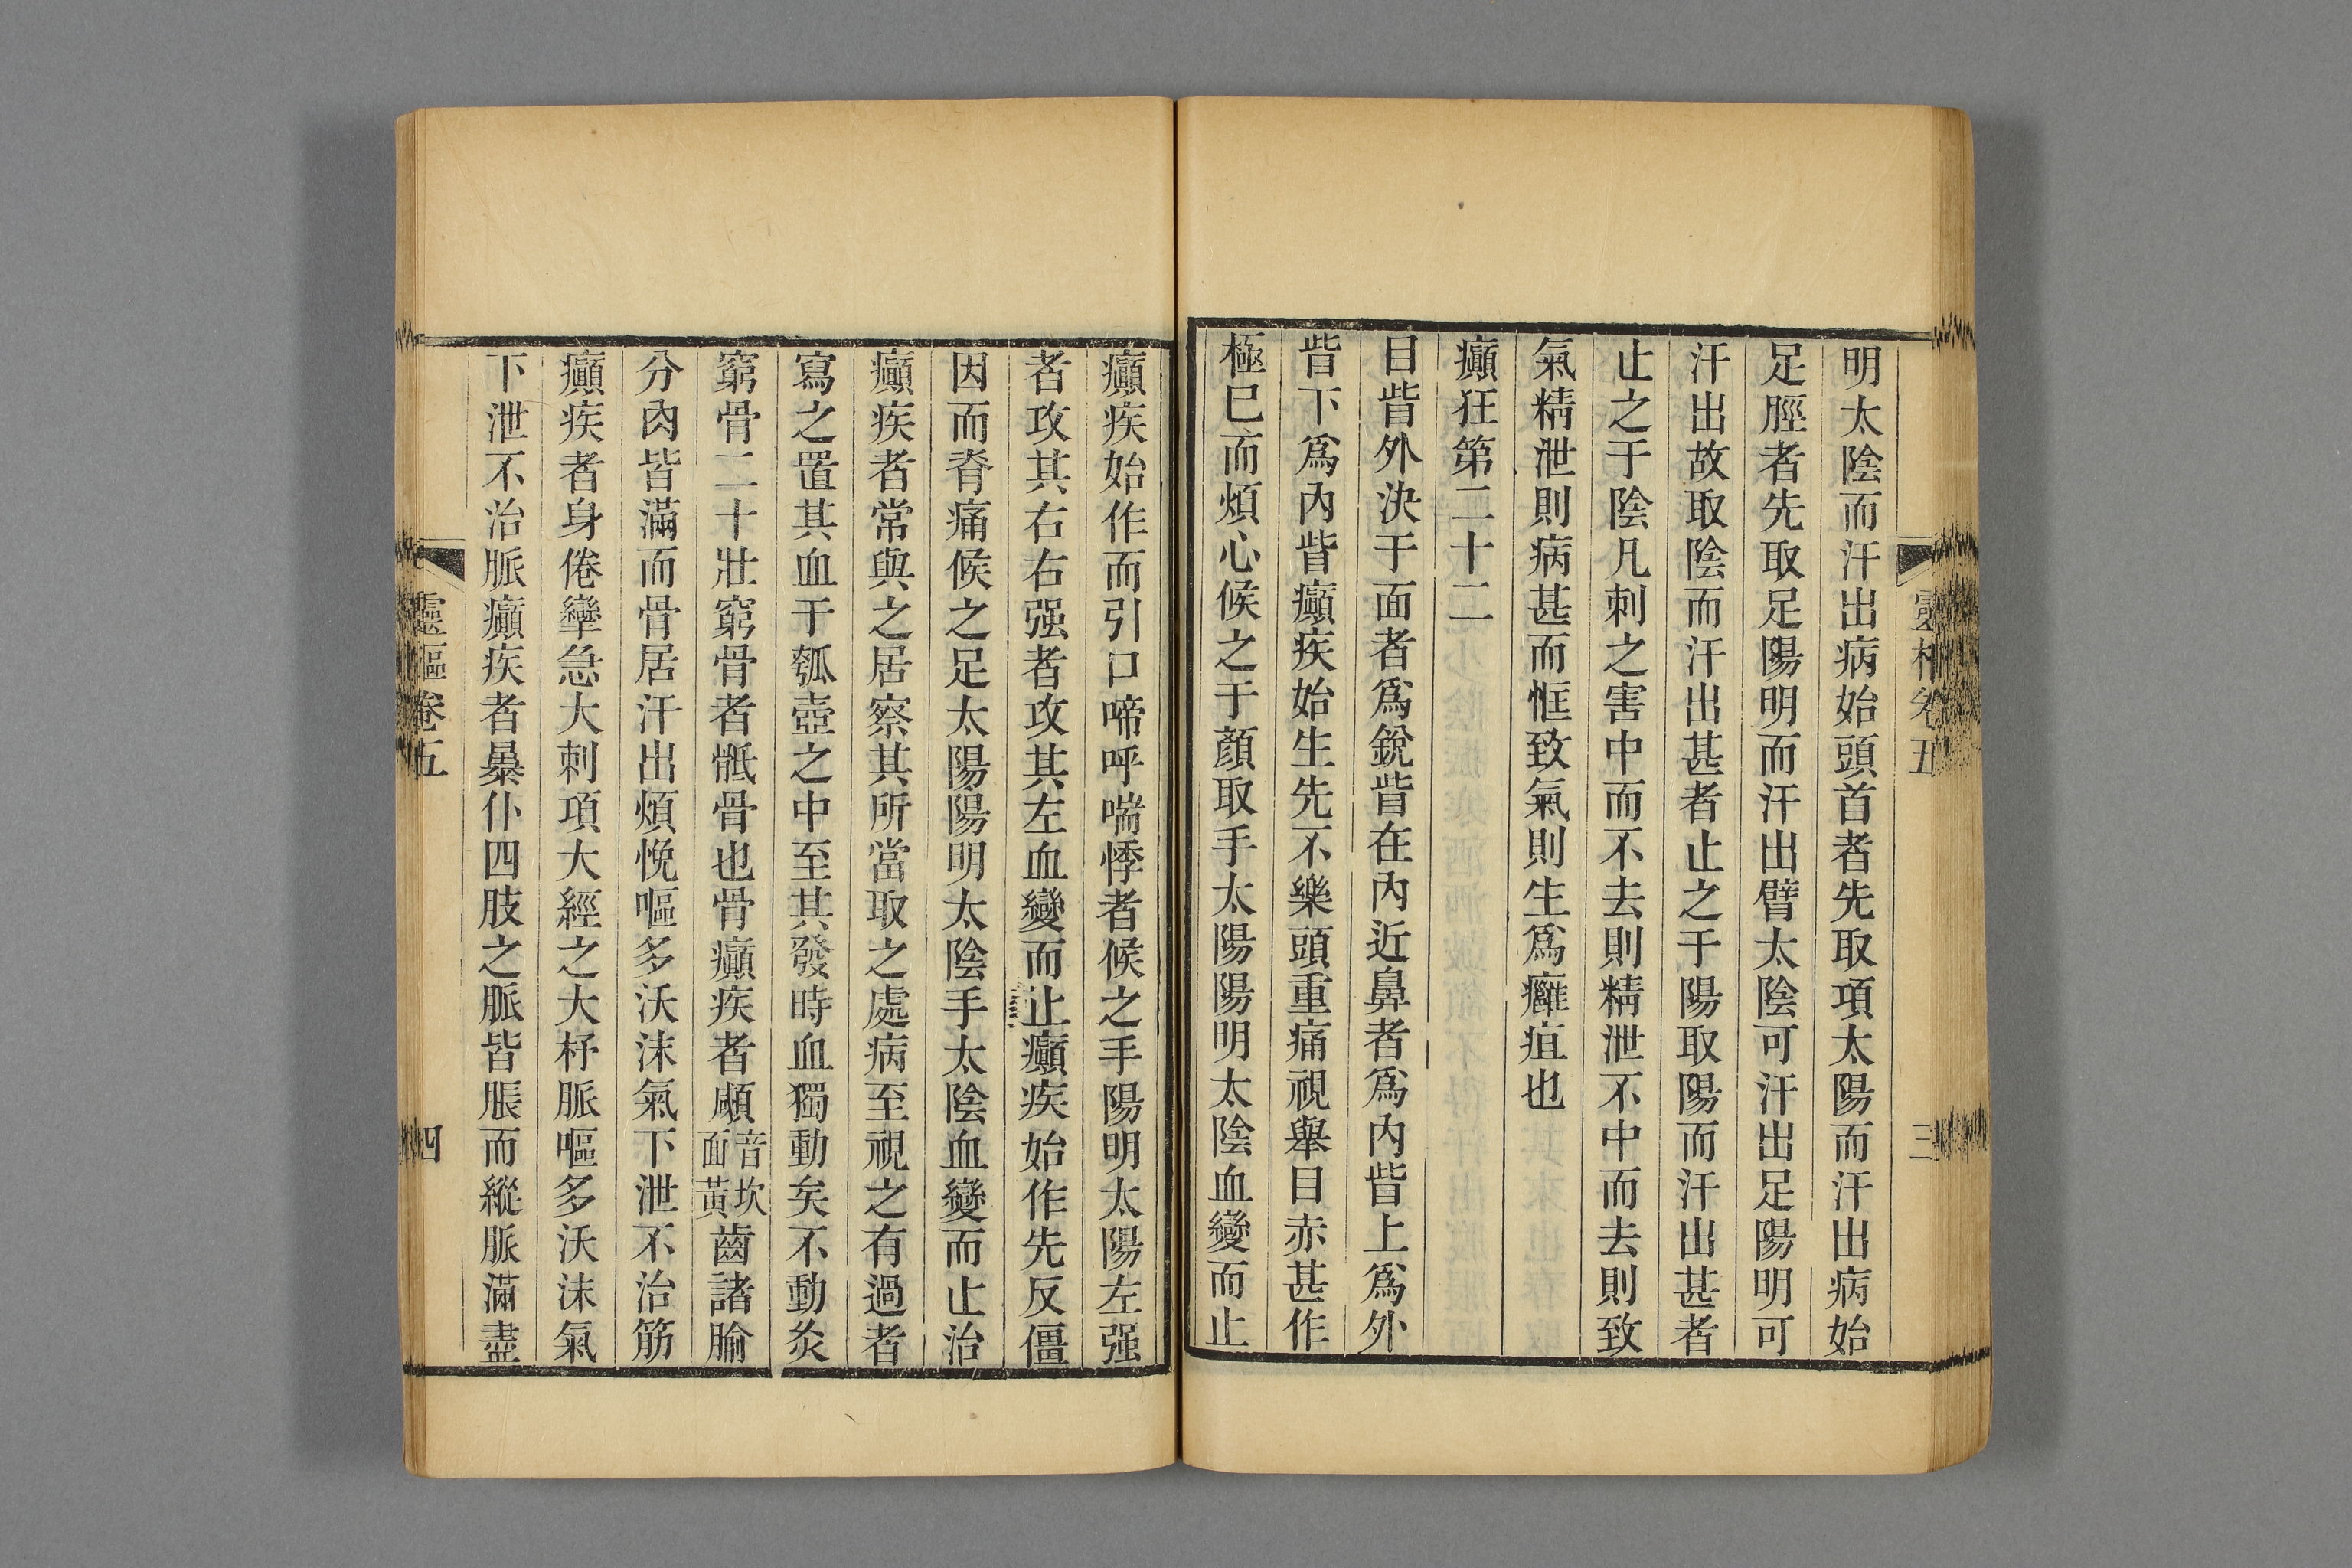 靈樞卷五
三
明太陰而汗出病始頭首者先取項太陽而汗出病始
足脛者先取足陽明而汗出臂太陰可汗出足陽明可
汗出故取陰而汗出甚者止之于陽取陽而汗出甚者
止之于陰凡刺之害中而不去則精泄不中而去則致
氣精泄則病甚而恇致氣則生爲癰疽也
癲狂第二十二
目眥外決于面者爲銳眥在內近鼻者爲內眥上爲外
眥下爲內眥癲疾始生先不樂頭重痛視舉目赤甚作
極已而煩心候之于顏取手太陽陽明太陰血變而止
癲疾始作而引口啼呼喘悸者候之手陽明太陽左强
者攻其右右强者攻其左血變而止癲疾始作先反僵
因而脊痛候之足太陽陽明太陰手太陰血變而止治
癲疾者常與之居察其所當取之處病至視之有過者
寫之置其血于瓠壺之中至其發時血獨動矣不動灸
窮骨二十壯窮骨者骶骨也骨癲疾者顑音坎面黃齒諸腧
分肉皆滿而骨居汗出煩悗嘔多沃沫氣下泄不治筋
癲疾者身倦攣急大刺項大經之大杼脈嘔多沃沫氣
下泄不治脈癲疾者暴仆四肢之脈皆脹而縱脈滿盡
靈樞卷五
四